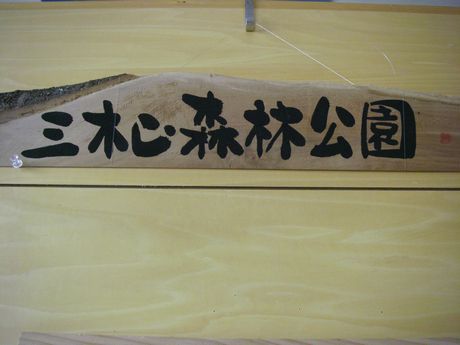 三木山森林公園